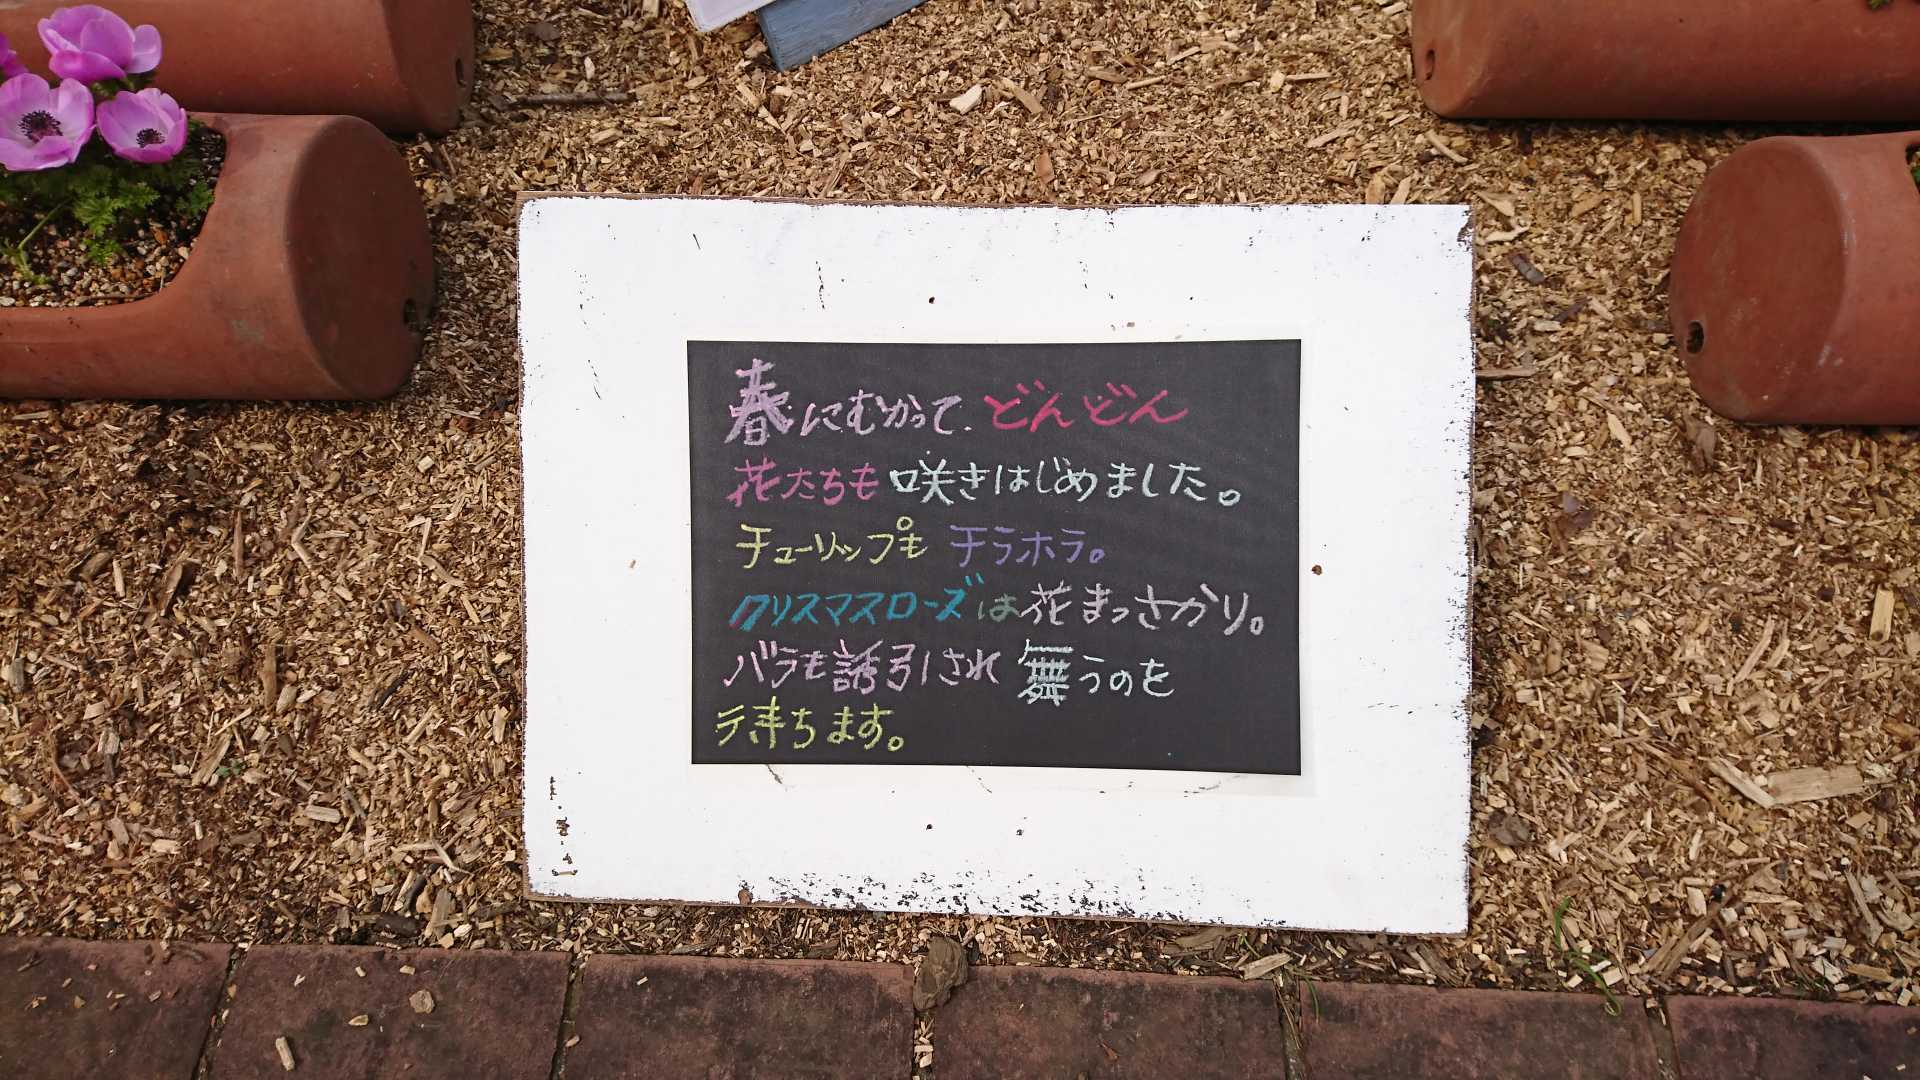 春にむかって どんどん
花たちも 咲きはじめました。
チューリップも チラホラ。
クリスマスローズは花まっさかり。
バラも誘引され 舞うのを
待ちます。